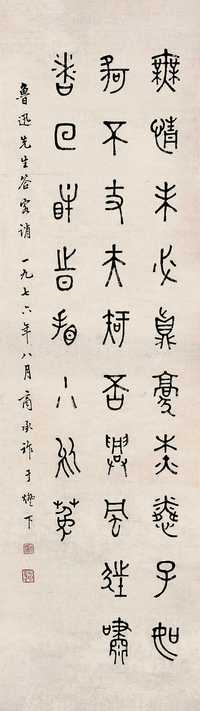 無情未必真豪杰憐子如
何不丈夫知否興風狂嘯
者回眸時看小於菟
魯迅先生答客誚 一九七六年八月商承祚于燈下